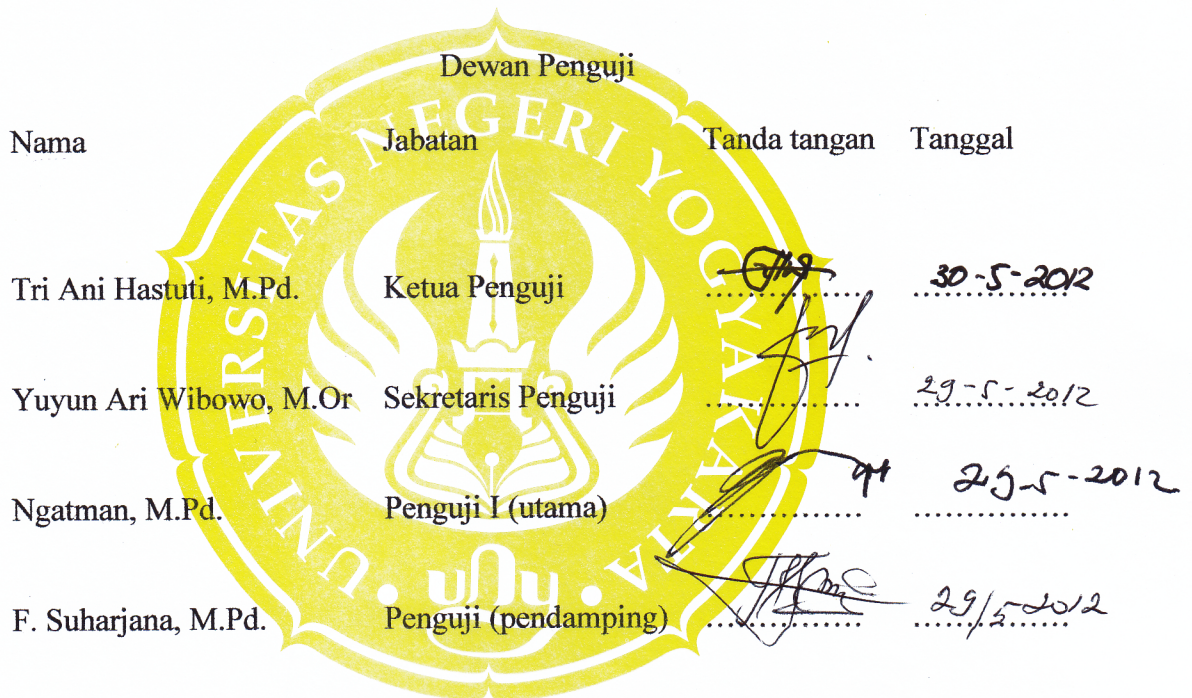 Dewan Penguji
Nama Jabatan Tanda tangan Tanggal
Tri Ani Hastuti, M.Pd. Ketua Penguji .................. 30-5-2012
Yuyun Ari Wibowo, M.Or Sekretaris Penguji .................. 29-5-2012
Ngatman, M.Pd. Penguji I (utama) .................. 29-5-2012
F. Suharjana, M.Pd. Penguji (pendamping) .................. 29/5-2012
UNIVERSITAS NEGERI YOGYAKARTA
uny